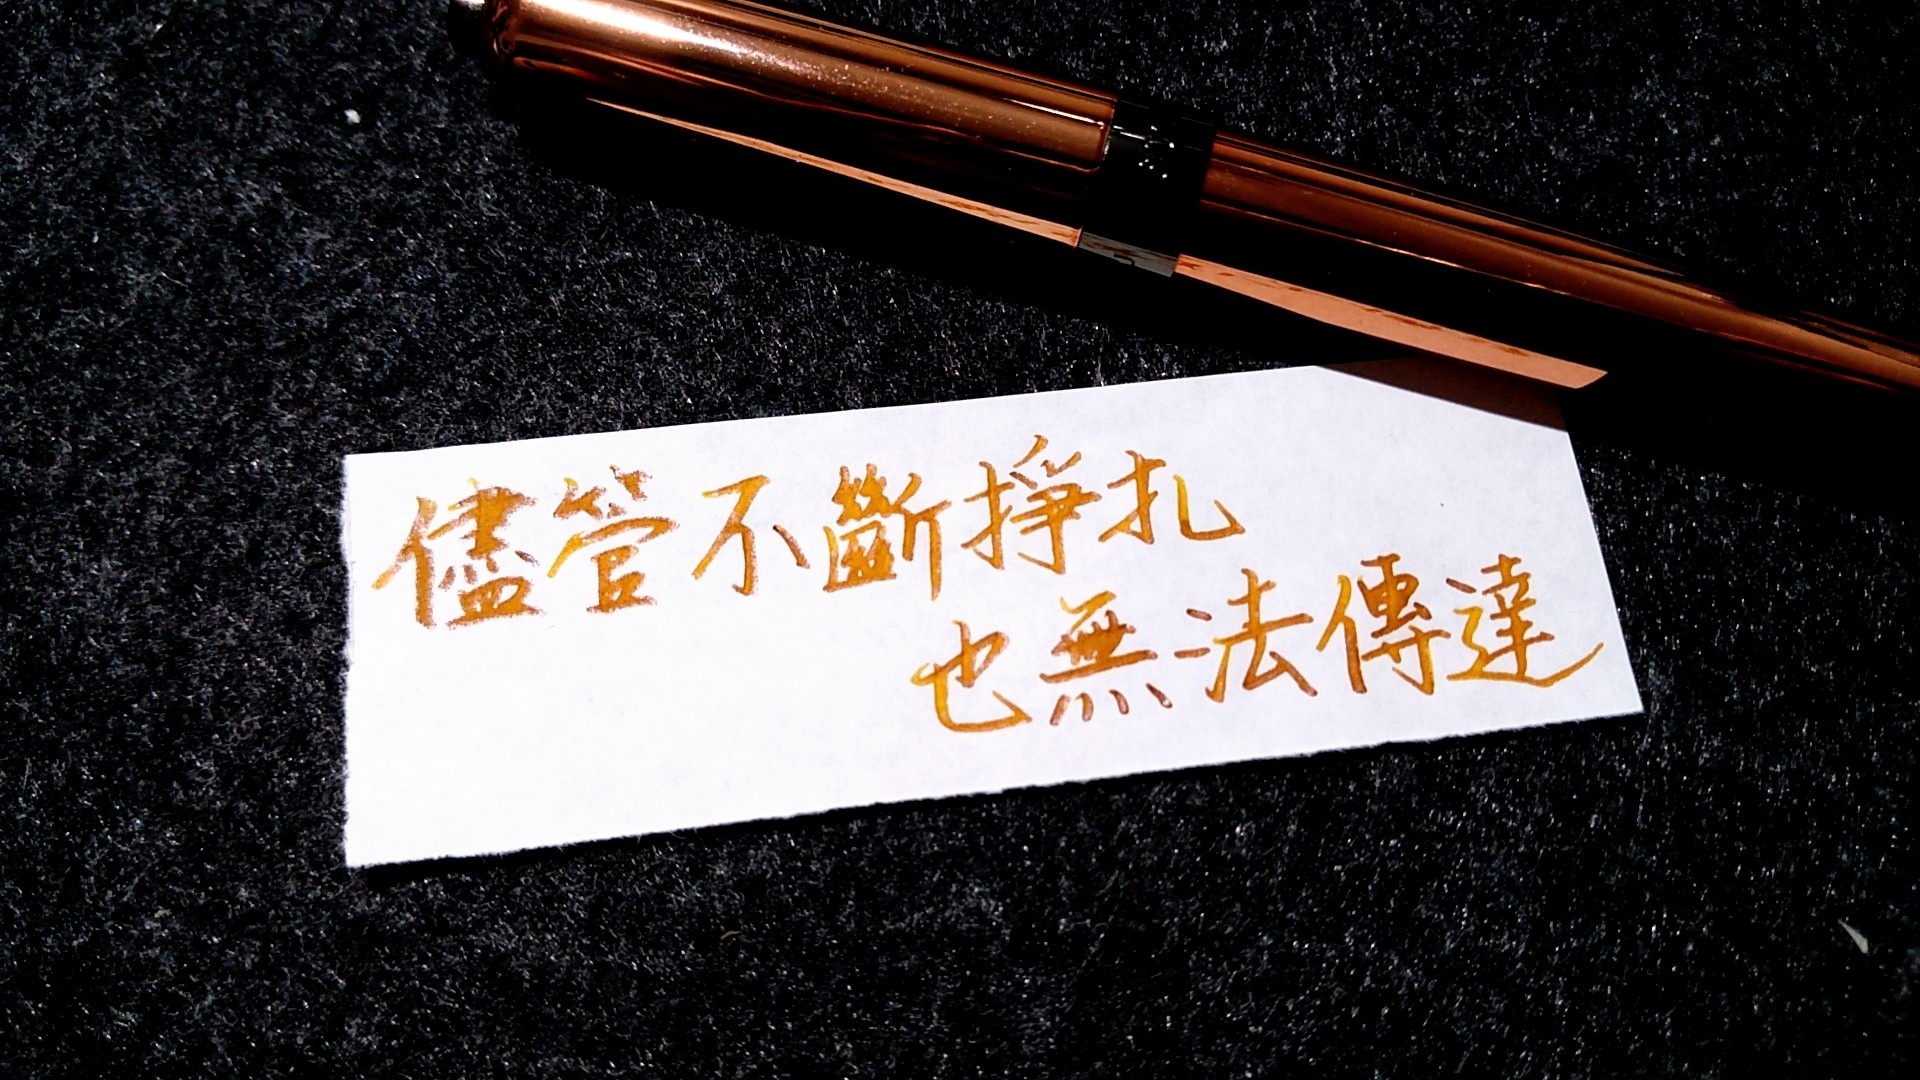 儘管不斷掙扎
也無法傳達